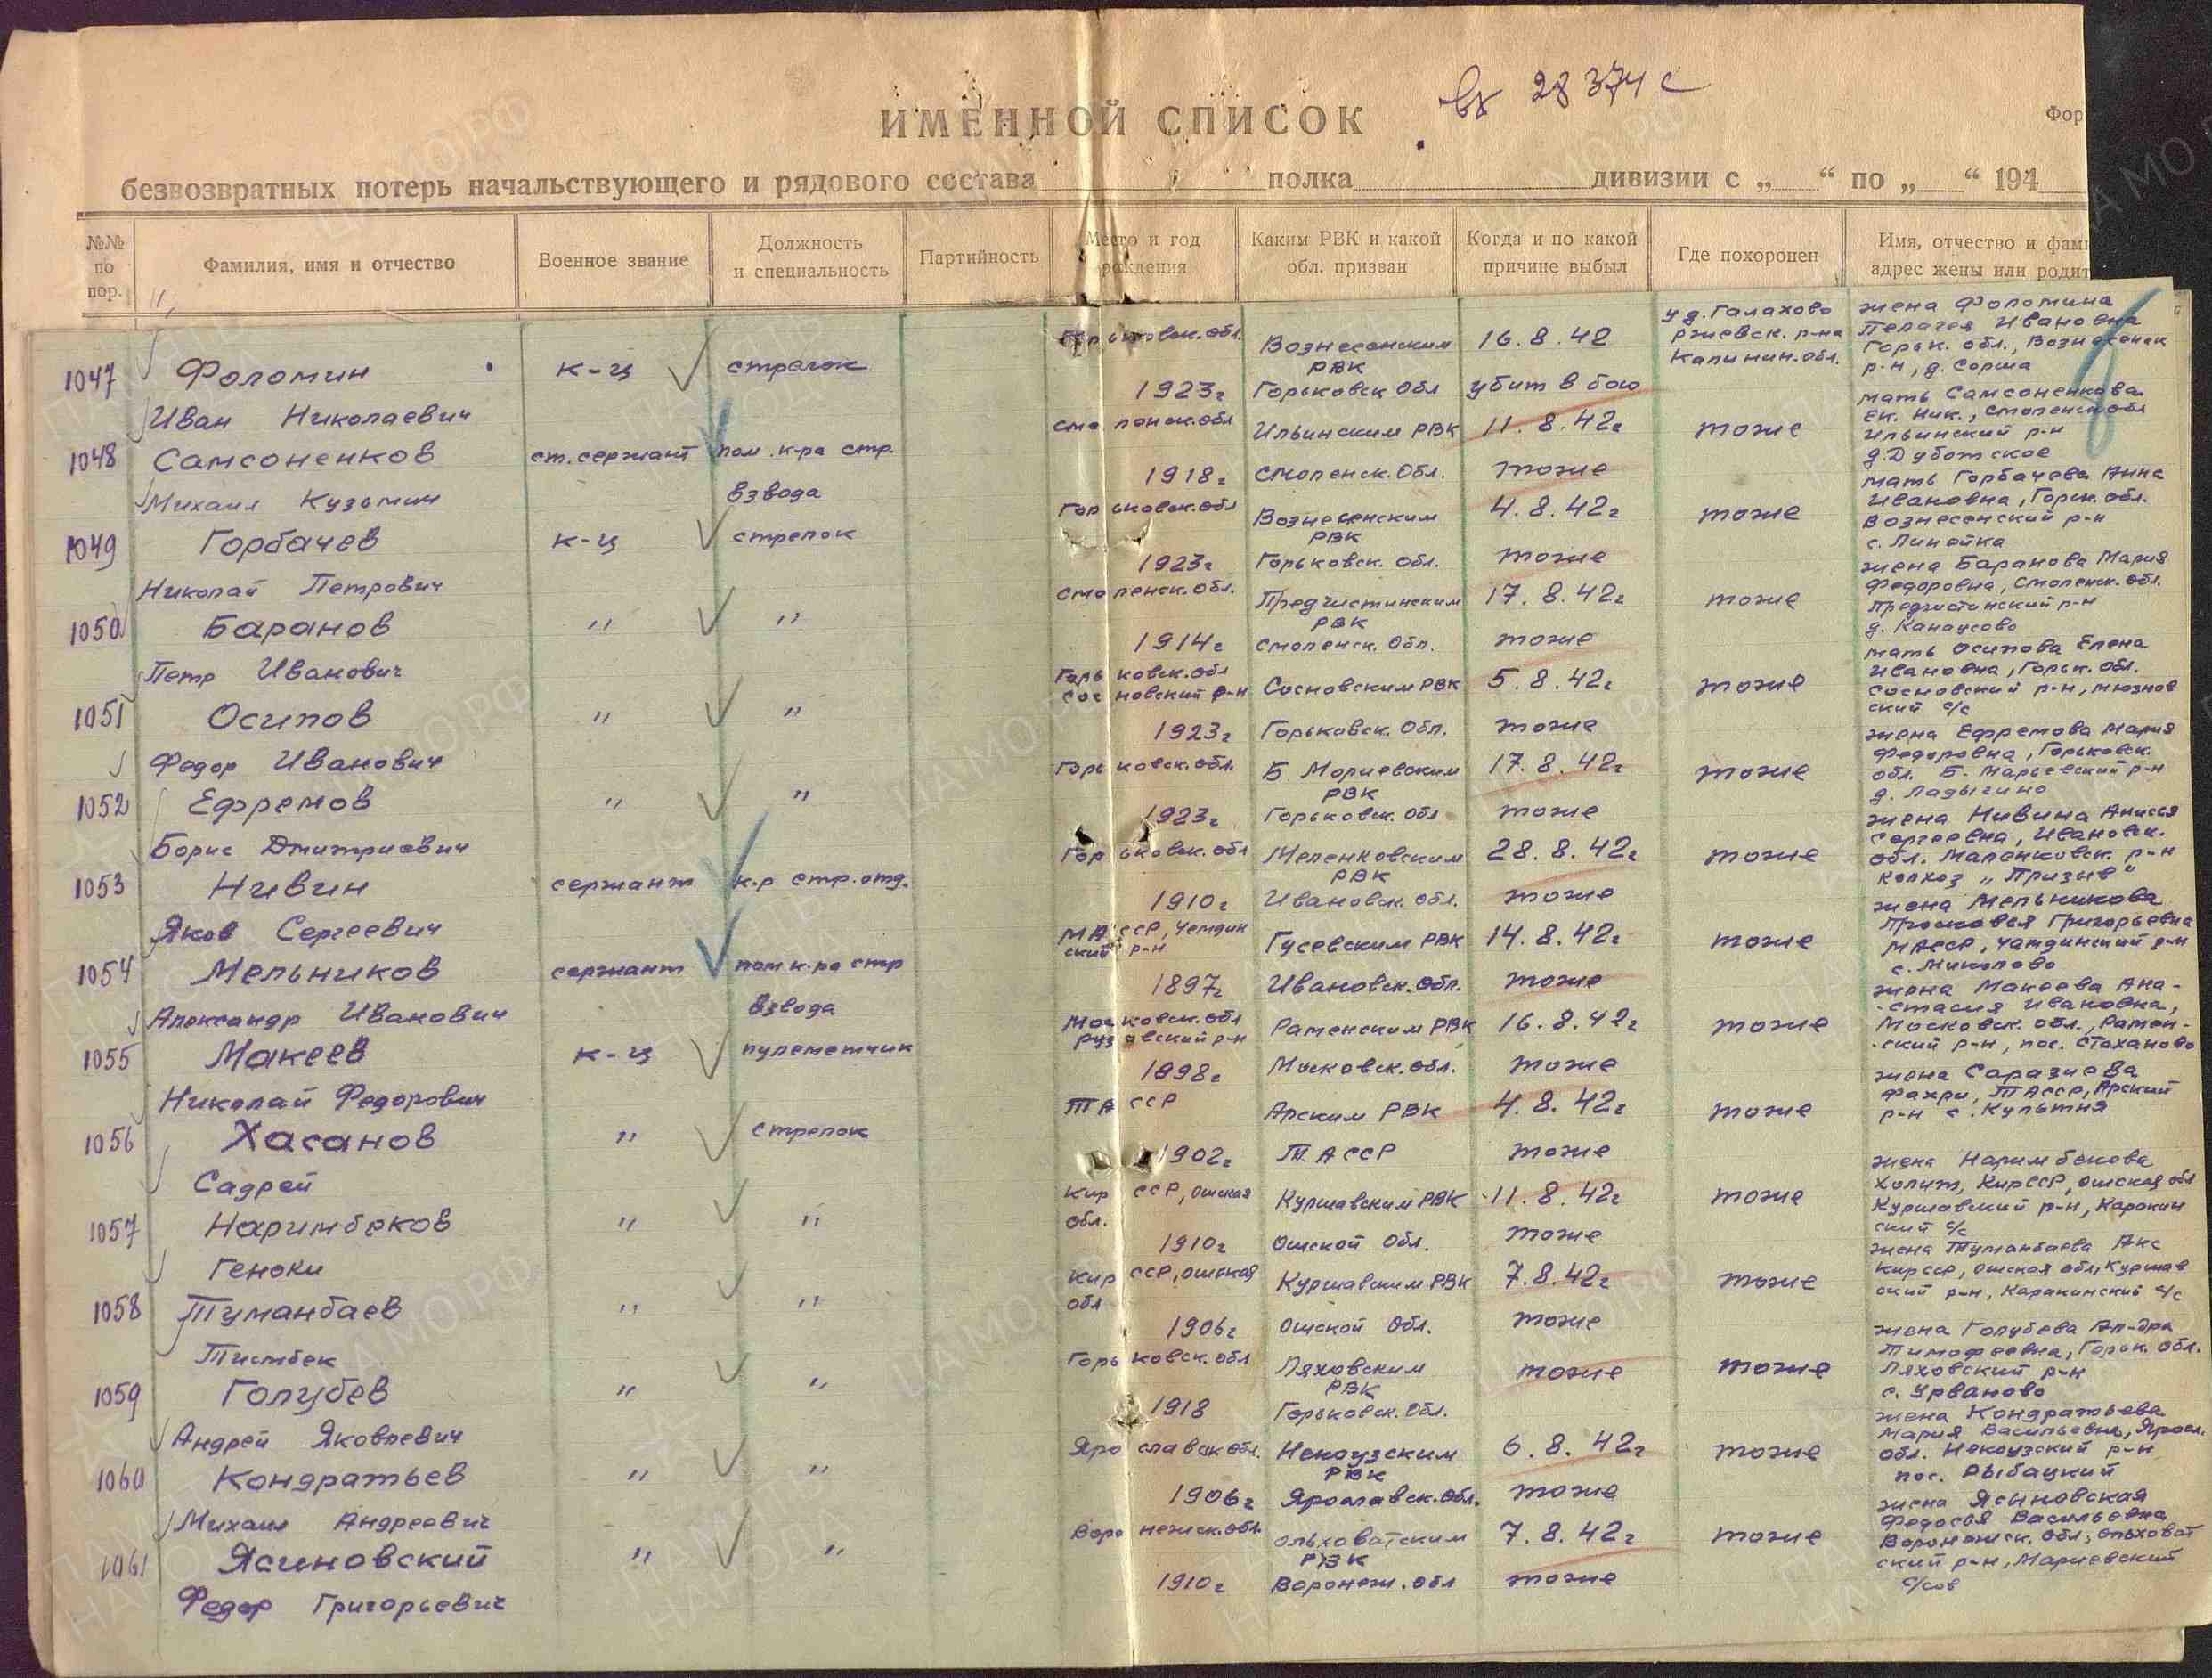 вх 28374с
ИМЕННОЙ СПИСОК
Фор
безвозвратных потерь начальствующего и рядового состава полка дивизии с „ “ по „ “ 194
№№ по пор.
Фамилия, имя и отчество
Военное звание
Должность и специальность
Партийность
Место и год рождения
Каким РВК и какой обл. призван
Когда и по какой причине выбыл
Где похоронен
Имя, отчество и фам
адрес жены или родит
1047 Фоломин Иван Николаевич
к-ц
стрелок
Горьковск. обл.
1923г
Вознесенским РВК
Горьковск обл
16.8.42
убит в бою
у д. Галахово
Ржевск. р-на
Калинин. обл.
жена Фоломина
Пелагея Ивановна
Горьк. обл., Вознесенск
р-н, д. Сорма
1048 Самсоненков Михаил Кузьмич
ст. сержант
пом. к-ра стр. взвода
Смоленск. обл
1918г
Ильинским РВК
Смоленск. обл.
11.8.42г
тоже
тоже
мать Самсоненкова
Ек. Ник., Смоленск обл
Ильинский р-н
1049 Горбачев Николай Петрович
к-ц
стрелок
Горьковск. обл
1923г
Вознесенским РВК
Горьковск. обл.
4.8.42г
тоже
тоже
мать Горбачева Анна
Ивановна, Горьк. обл.
Вознесенский р-н
с. Линейка
1050 Баранов Петр Иванович
"
"
Смоленск. обл.
1914г
Предчистинским РВК
Смоленск. обл.
17.8.42г
тоже
тоже
жена Баранова Мария
Федоровна, Смоленск. обл.
Предчистинский р-н
1051 Осипов Федор Иванович
"
"
Горьковск. обл
Сосновский р-н
1923г
Сосновским РВК
Горьковск. обл.
5.8.42г
тоже
тоже
мать Осипова Елена
Ивановна, Горьк. обл.
Сосновский р-н,
ский с/с
1052 Ефремов Борис Дмитриевич
"
"
Горьковск. обл.
1923г
Б. Мориевским РВК
Горьковск. обл
17.8.42г
тоже
тоже
жена Ефремова Мария
Федоровна, Горьковск.
обл. Б. Марьевский р-н
д. Ладыгино
1053 Нивин Яков Сергеевич
сержант
к-р стр. отд.
Горьковск. обл
1910г
Меленковским РВК
Ивановск. обл.
28.8.42г
тоже
тоже
жена Нивина Анисья
Сергеевна, Ивановск.
обл. Маленковск. р-н
колхоз „Призыв“
1054 Мельников Александр Иванович
сержант
пом к-ра стр взвода
МАССР, Чемдин
ский р-н
1897г
Гусевским РВК
Ивановск. обл.
14.8.42г
тоже
тоже
жена Мельникова
Прасковья Григорьевна
МАССР, Чемдинский р-н
1055 Макеев Николай Федорович
к-ц
пулеметчик
Московск. обл
1898г
Раменским РВК
Московск. обл.
16.8.42г
тоже
тоже
жена Макеева Ана-
-стасия Ивановна,
Московск. обл., Рамен-
-ский р-н, пос. Стаханово
1056 Хасанов Садрей
"
стрелок
ТАССР
1902г
Арским РВК
ТАССР
4.8.42г
тоже
тоже
жена Саразиева
Фахри, ТАССР, Арский
р-н с. Культня
1057 Наримбеков Геноки
"
"
Кир ССР, Ошская
обл.
1910г
Куршавским РВК
Ошской обл.
11.8.42г
тоже
тоже
жена Наримбекова
Холит, Кир ССР, Ошская обл
Куршавский р-н, Карокин
ский с/с
1058 Туманбаев Тистбек
"
"
Кир ССР, Ошская
обл
1906г
Куршавским РВК
Ошской обл.
7.8.42г
тоже
тоже
жена Туманбаева Акс
Кир ССР, Ошская обл, Куршав
ский р-н, Каракинский с/с
1059 Голубев Андрей Яковлевич
"
"
Горьковск. обл
1918
Ляховским РВК
Горьковск. обл.
тоже
тоже
жена Голубева Ал-дра
Тимофеевна, Горьк. обл.
Ляховский р-н
с. Урваново
1060 Кондратьев Михаил Андреевич
"
"
Ярославск обл.
1906г
Некоузским РВК
Ярославск. обл.
6.8.42г
тоже
тоже
жена Кондратьева
Мария Васильевна, Яросл.
обл. Некоузский р-н
пос. Рыбацкий
1061 Ясиновский Федор Григорьевич
"
"
Воронежск. обл.
1910г
Ольховатским РВК
Воронеж. обл
7.8.42г
тоже
тоже
жена Ясыновская
Федосья Васильевна
Воронежск. обл, Ольховат
ский р-н, Мариевский
с/сов